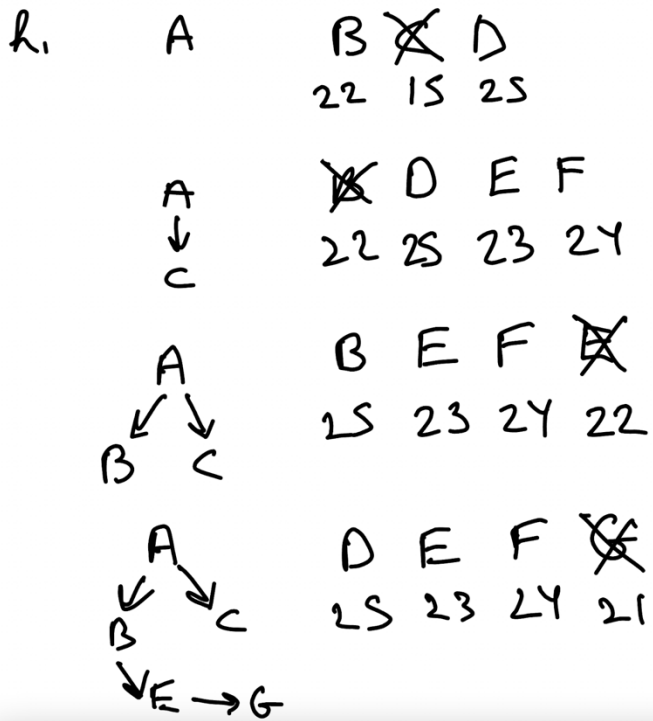 h. A B C D
22 15 25
A B D E F
22 25 23 24
C
A B E F E
25 23 24 22
B C
A D E F G
25 23 24 21
B C
E → G